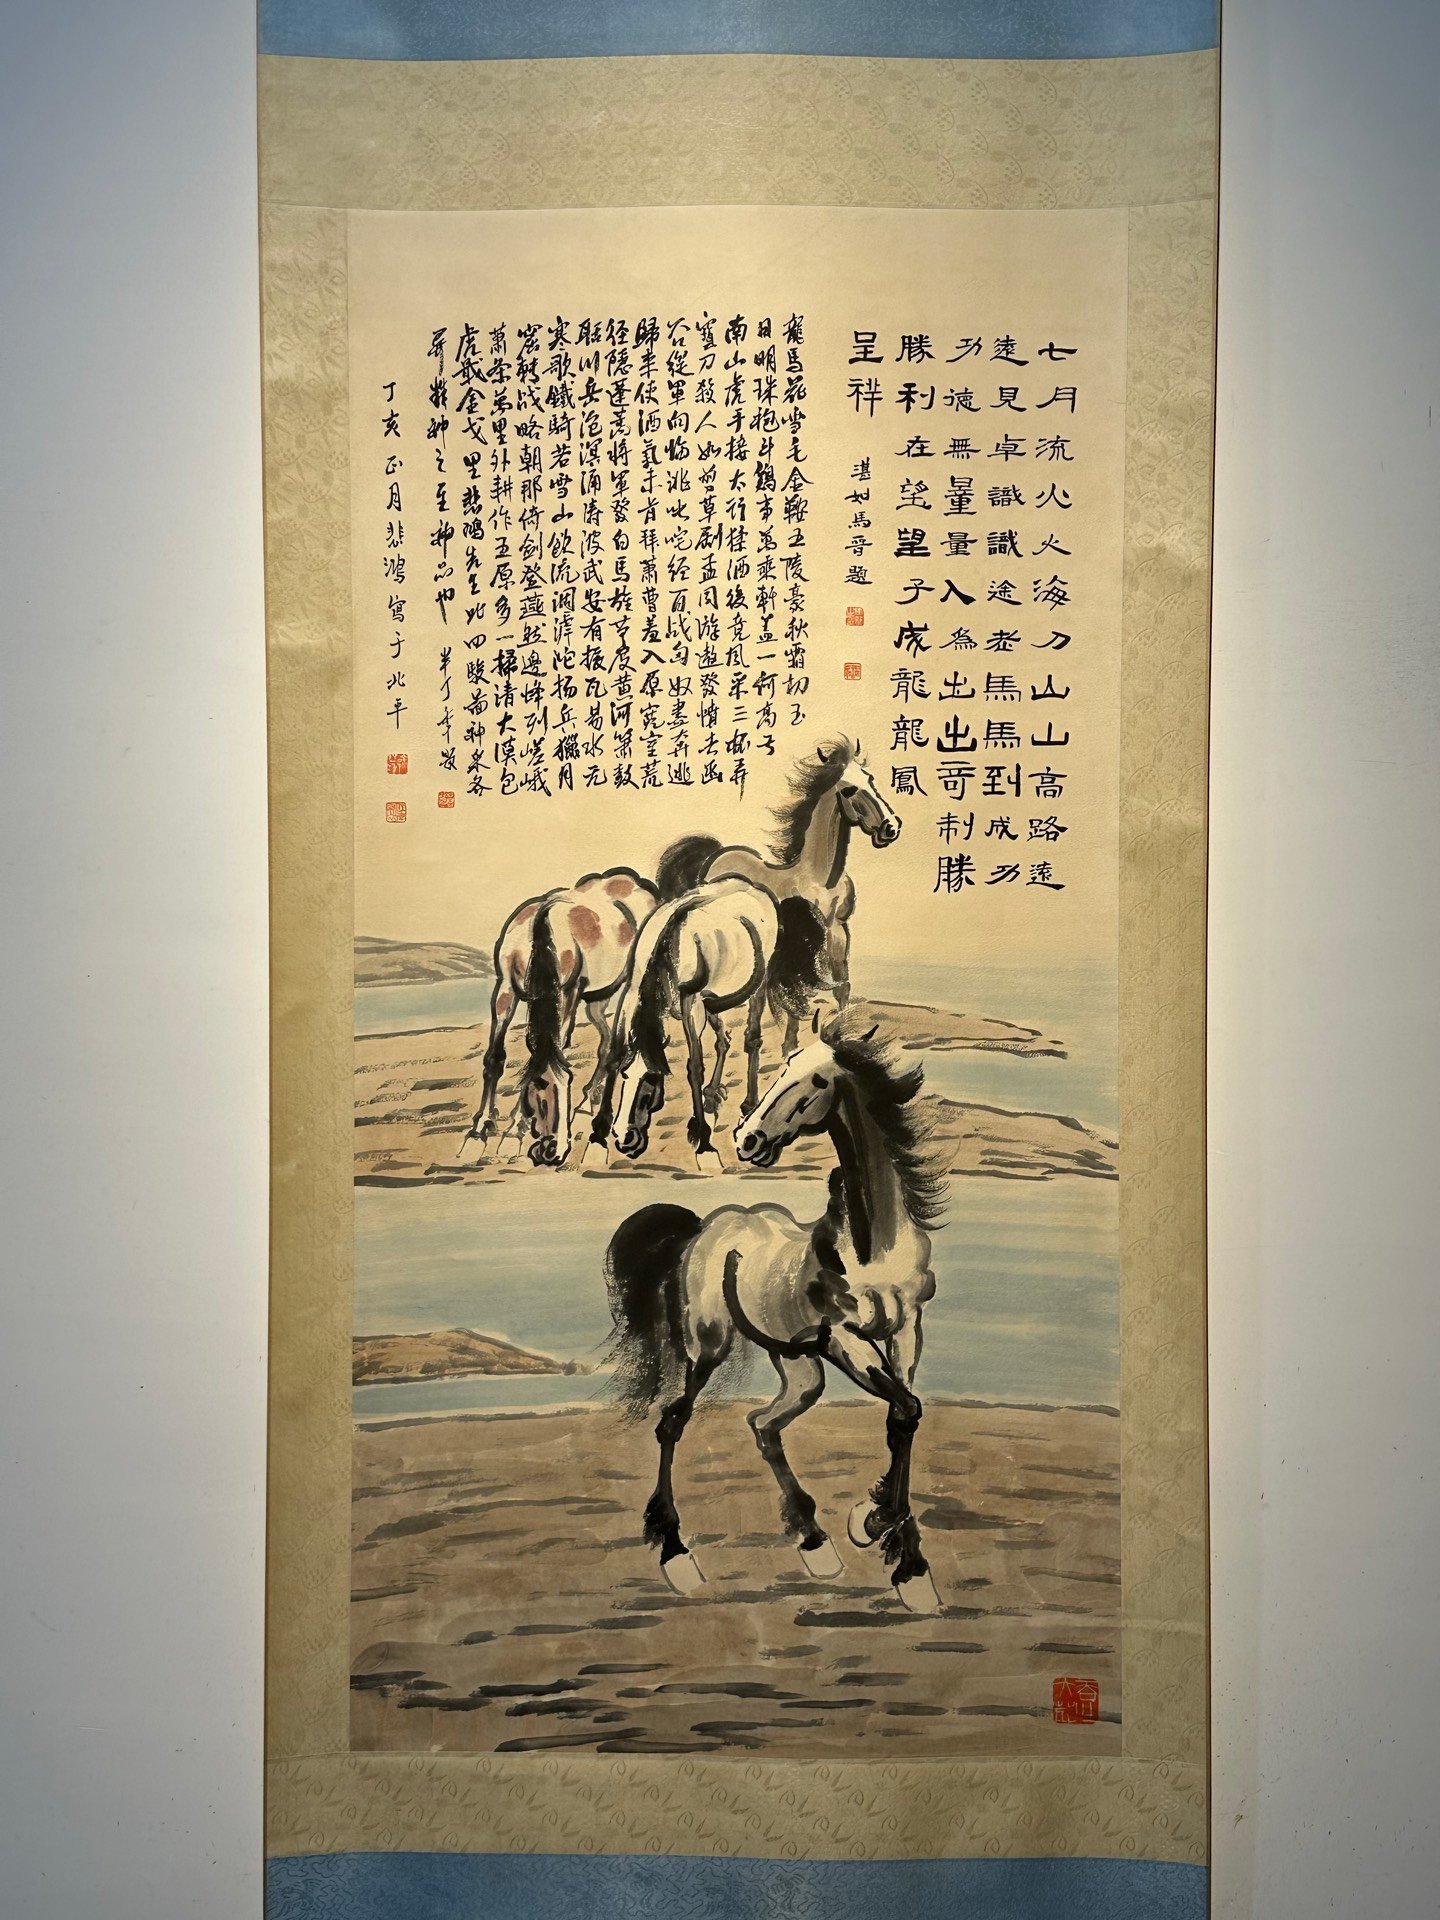 七月流火火海刀山山高路遠
遠見卓識識途老馬馬到成功
功德無量量入為出出奇制勝
勝利在望望子成龍龍鳳
呈祥
湛如馬晉題
龍馬花雪毛金鞍五陵豪秋霜切玉
日明珠袍斗鷄事萬乘軒蓋一何高弓
南山虎手接太行猱酒後竞风采三杯弄
寶刀殺人如剪草劇孟同游遨發憤去函
谷從軍向臨洮叱咤經百战匈奴盡奔逃
歸来使酒氣未肯拜蕭曹羞入原憲室荒
径隱蓬蒿將軍發白馬旌节度黄河箫鼓
聒川岳滄溟涌涛波武安有振瓦易水无
寒歌鐵騎若雪山飲流涸滹沱扬兵獵月
窟轉战略朝那倚剑登燕然邊烽列嵯峨
蕭条萬里外耕作五原多一掃清大漠包
虎戢金戈里悲鴻先生此四駿苗神采各
异精神之至神品也 半丁
丁亥正月悲鴻寫于北平